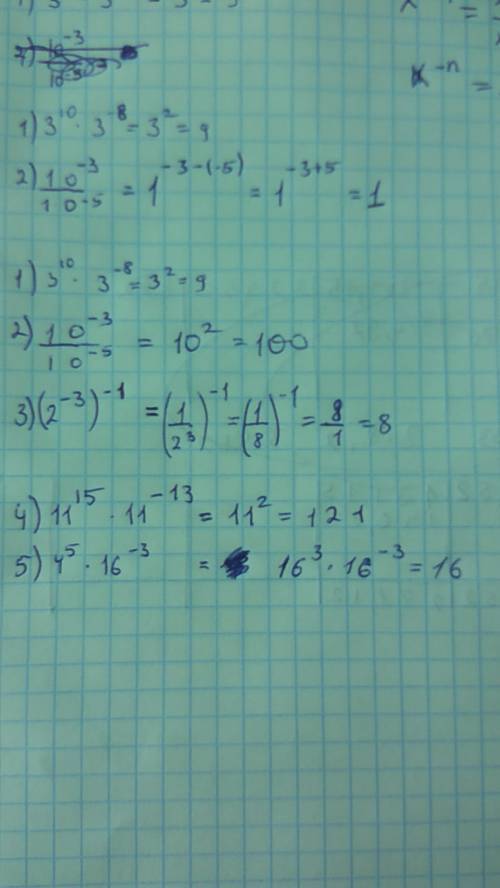 x =
7) 10^-3
x^-n =
1) 3^10 · 3^-8 = 3^2 = 9
2) 10^-3 / 10^-5 = 1^-3-(-5) = 1^-3+5 = 1
1) 3^10 · 3^-8 = 3^2 = 9
2) 10^-3 / 10^-5 = 10^2 = 100
3) (2^-3)^-1 = (1/2^3)^-1 = (1/8)^-1 = 8/1 = 8
4) 11^15 · 11^-13 = 11^2 = 121
5) 4^5 · 16^-3 = 16^3 · 16^-3 = 16